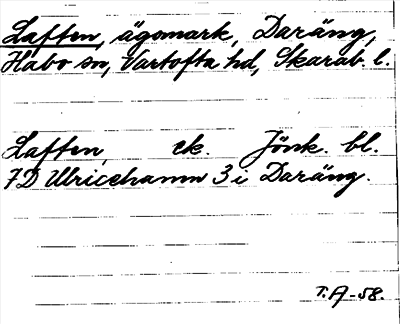 Laffen, ägomark, Daräng,
Habo sn, Vartofta hd, Skarab. l.
Laffen ek. Jönk. bl.
7D Ulricehamn 3 i Daräng.
T.A-58.